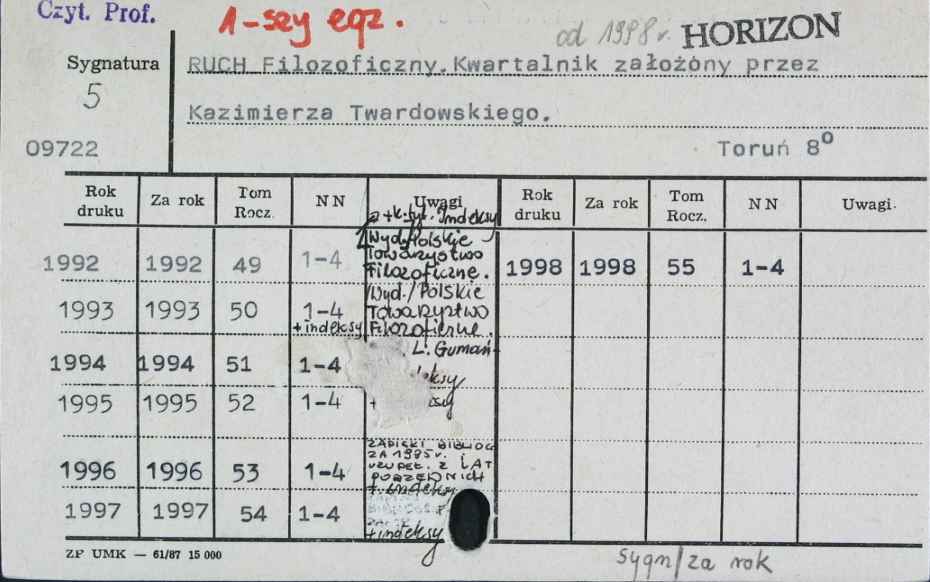 Czyt. Prof.
1-szy egz.
od 1998 r. HORIZON
Sygnatura
5
09722
RUCH Filozoficzny. Kwartalnik założony przez
Kazimierza Twardowskiego.
Toruń 8⁰
Rok druku Za rok Tom Rocz. NN Uwagi Rok druku Za rok Tom Rocz. NN Uwagi
Indeksy
1992 1992 49 1-4 Wyd./Polskie Towarzystwo Filozoficzne. 1998 1998 55 1-4
1993 1993 50 1-4 + indeksy /Wyd./Polskie Towarzystwo Filozoficzne.
1994 1994 51 1-4 L. Gumań-
1995 1995 52 1-4 +
1996 1996 53 1-4 ZAPISKI BIBLIOG ZA 1995 r. i UZUPEŁ. Z LAT POPRZEDNICH + indeksy
1997 1997 54 1-4 + indeksy
ZP UMK — 61/87 15 000
sygn/za rok